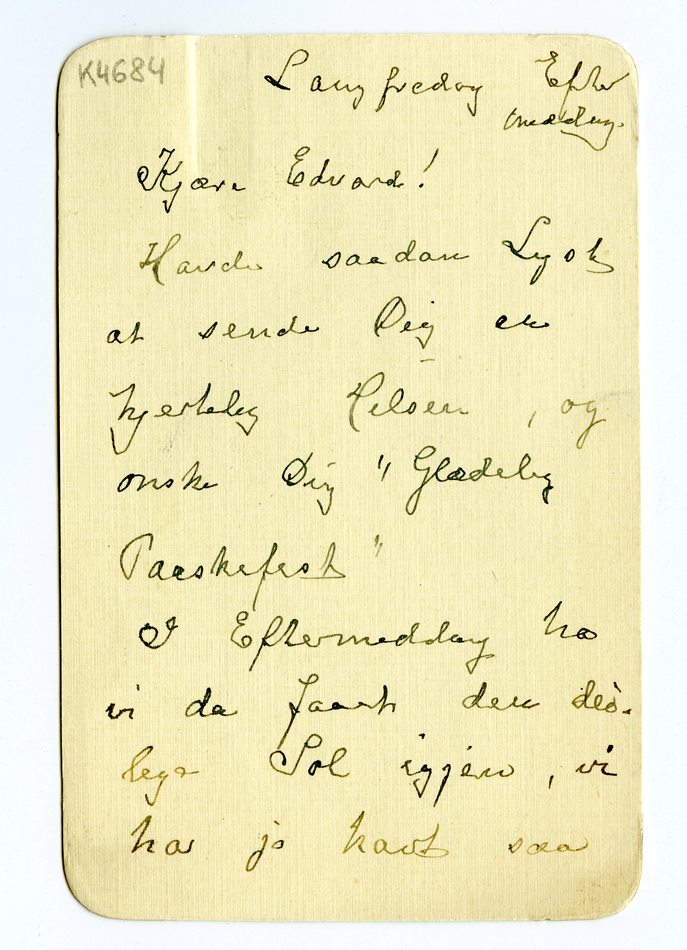 K4684
Langfredag Efter
middag.
Kjære Edvard!
Havde saadan Lyst
at sende Dig en
hjertelig Hilsen, og
ønske Dig "Glædelig
Paaskefest"
I Eftermiddag ha
vi da faaet den dei-
lige Sol igjen, vi
har jo havt saa